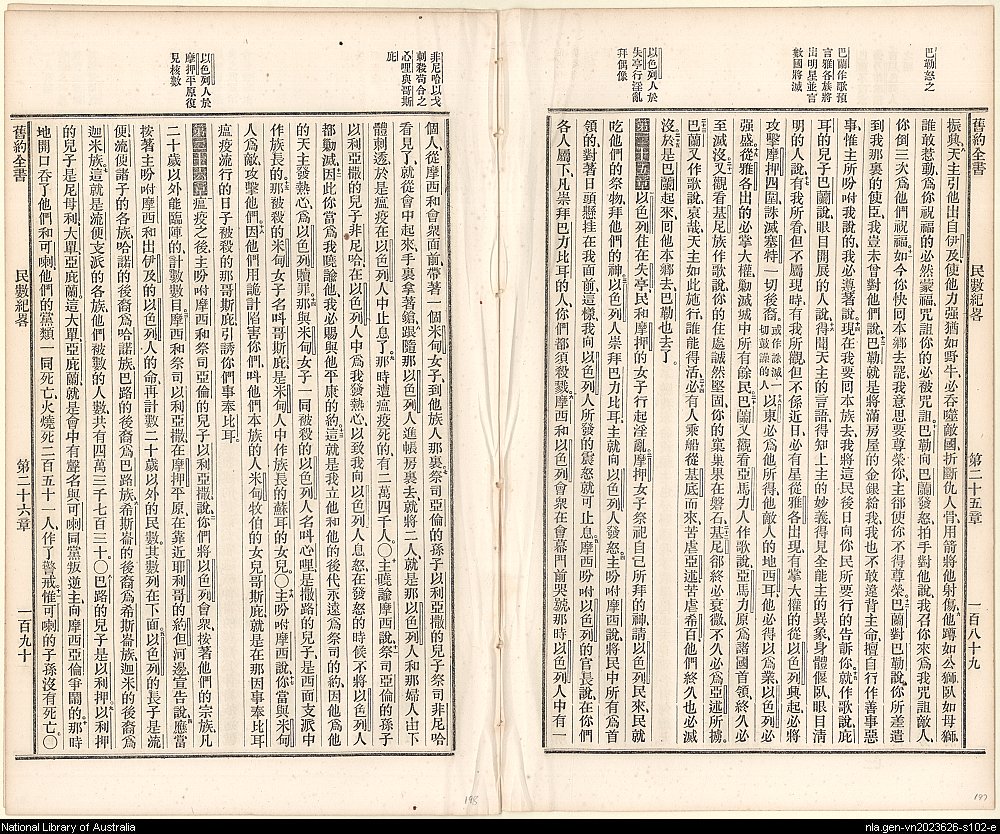 舊約全書 民數紀畧 第二十五章 一百八十九
巴勒怒之
巴蘭作歌預
言雅各族將
出明星並言
數國將滅
以色列人於
失亭行淫亂
拜偶像
振興天主引他出自伊及使他力強猶如野牛必吞噬敵國折斷仇人骨用箭將他射傷他蹲如公獅臥如母獅
誰敢惹動為你祝福的必然蒙福咒詛你的必被咒詛巴勒向巴蘭發怒拍手對他說我召你來為我咒詛敵人
你倒三次為他們祝福如今你快回本鄉去罷我意思要尊榮你主郤使你不得尊榮巴蘭對巴勒說你所差遣
到我那裏的使臣我豈未曾對他們說巴勒就是將滿房屋的金銀給我我也不敢違背主命擅自行作善事惡
事惟主所吩咐我說的我必遵著說現在我要回本族去我將這民後日向你民所要行的告訴你就作歌說庇
耳的兒子巴蘭說眼目開展的人說得聞天主的言語得知上主的妙義得見全能主的異象身體偃臥眼目清
明的人說有我所看但不屬現時有我所觀但不係近日必有星從雅各出現有掌大權的從以色列興起必將
攻擊摩押四圍誅滅塞特一切後裔 或作誅滅一切鼓譟的人 以東必為他所得他敵人的地西耳他必得以為業以色列必
強盛從雅各出的必掌大權勦滅城中所有餘民巴蘭又觀看亞馬力人作歌說亞馬力原為諸國首領終久必
至滅沒又觀看基尼族作歌說你的住處誠然堅固你的窠巢果在磐石基尼郤終必衰微不久必為亞述所擄
巴蘭又作歌說哀哉天主如此施行誰能得活必有人乘船從基底而來苦虐亞述苦虐希百他們終久也必滅
沒於是巴蘭起來回他本鄉去巴勒也去了
第二十五章 以色列住在失亭民和摩押的女子行起淫亂摩押女子祭祀自己所拜的神請以色列民來民就
吃他們的祭物拜他們的神以色列人崇拜巴力比耳主就向以色列人發怒主吩咐摩西說將民中所有為首
領的對著日頭懸挂在我面前這樣我向以色列人所發的震怒就可止息摩西吩咐以色列的官長說在你們
各人屬下凡崇拜巴力比耳的人你們都須殺戮摩西和以色列會眾在會幕門前哭號那時以色列人中有一
197
非尼哈以戈
刺殺苟合之
心哩與哥斯
庇
以色列人於
摩押平原復
見核數
個人從摩西和會眾面前帶著一個米甸女子到他族人那裏祭司亞倫的孫子以利亞撒的兒子祭司非尼哈
看見了就從會中起來手裏拿著鎗跟隨那以色列人進帳房裏去就將二人就是那以色列人和那婦人由下
體刺透於是瘟疫在以色列人中止息了那時遭瘟疫死的有二萬四千人〇主曉諭摩西說祭司亞倫的孫子
以利亞撒的兒子非尼哈在以色列人中為我發熱心以致我向以色列人息怒在發怒的時候不將以色列人
都勦滅因此你當為我曉諭他我必賜與他平康的約這就是我立他和他的後代永遠為祭司的約因他為他
的天主發熱心為以色列贖罪那與米甸女子一同被殺的以色列人名呌心哩是撒路的兒子是西面支派中
作族長的那被殺的米甸女子名呌哥斯庇是米甸人中作族長的蘇耳的女兒〇主吩咐摩西說你當與米甸
人為敵攻擊他們因他們用詭計陷害你們呌他們本族的人米甸牧伯的女兒哥斯庇就是在那因事奉比耳
瘟疫流行的日子被殺的那哥斯庇引誘你們事奉比耳
第二十六章 瘟疫之後主吩咐摩西和祭司亞倫的兒子以利亞撒說你們將以色列會眾按著他們的宗族凡
二十歲以外能臨陣的計數數目摩西和祭司以利亞撒在摩押平原在靠近耶利哥的約但河邊宣告說應當
按著主吩咐摩西和出伊及的以色列人的命再計數二十歲以外的民數其數列在下面以色列的長子是流
便流便諸子的各族哈諾的後裔為哈諾族巴路的後裔為巴路族希斯崙的後裔為希斯崙族迦米的後裔為
迦米族這就是流便支派的各族他們被數的人數共有四萬三千七百三十〇巴路的兒子是以利押以利押
的兒子是尼母利大單亞庇蘭這大單亞庇蘭就是會中有聲名與可喇同黨叛逆主向摩西亞倫爭鬧的那時
地開口吞了他們和可喇他們的黨類一同死亡火燒死二百五十一人作了警戒惟可喇的子孫沒有死亡〇
舊約全書 民數紀畧 第二十六章 一百九十
198
National Library of Australia
nla.gen-vn2023626-s102-e